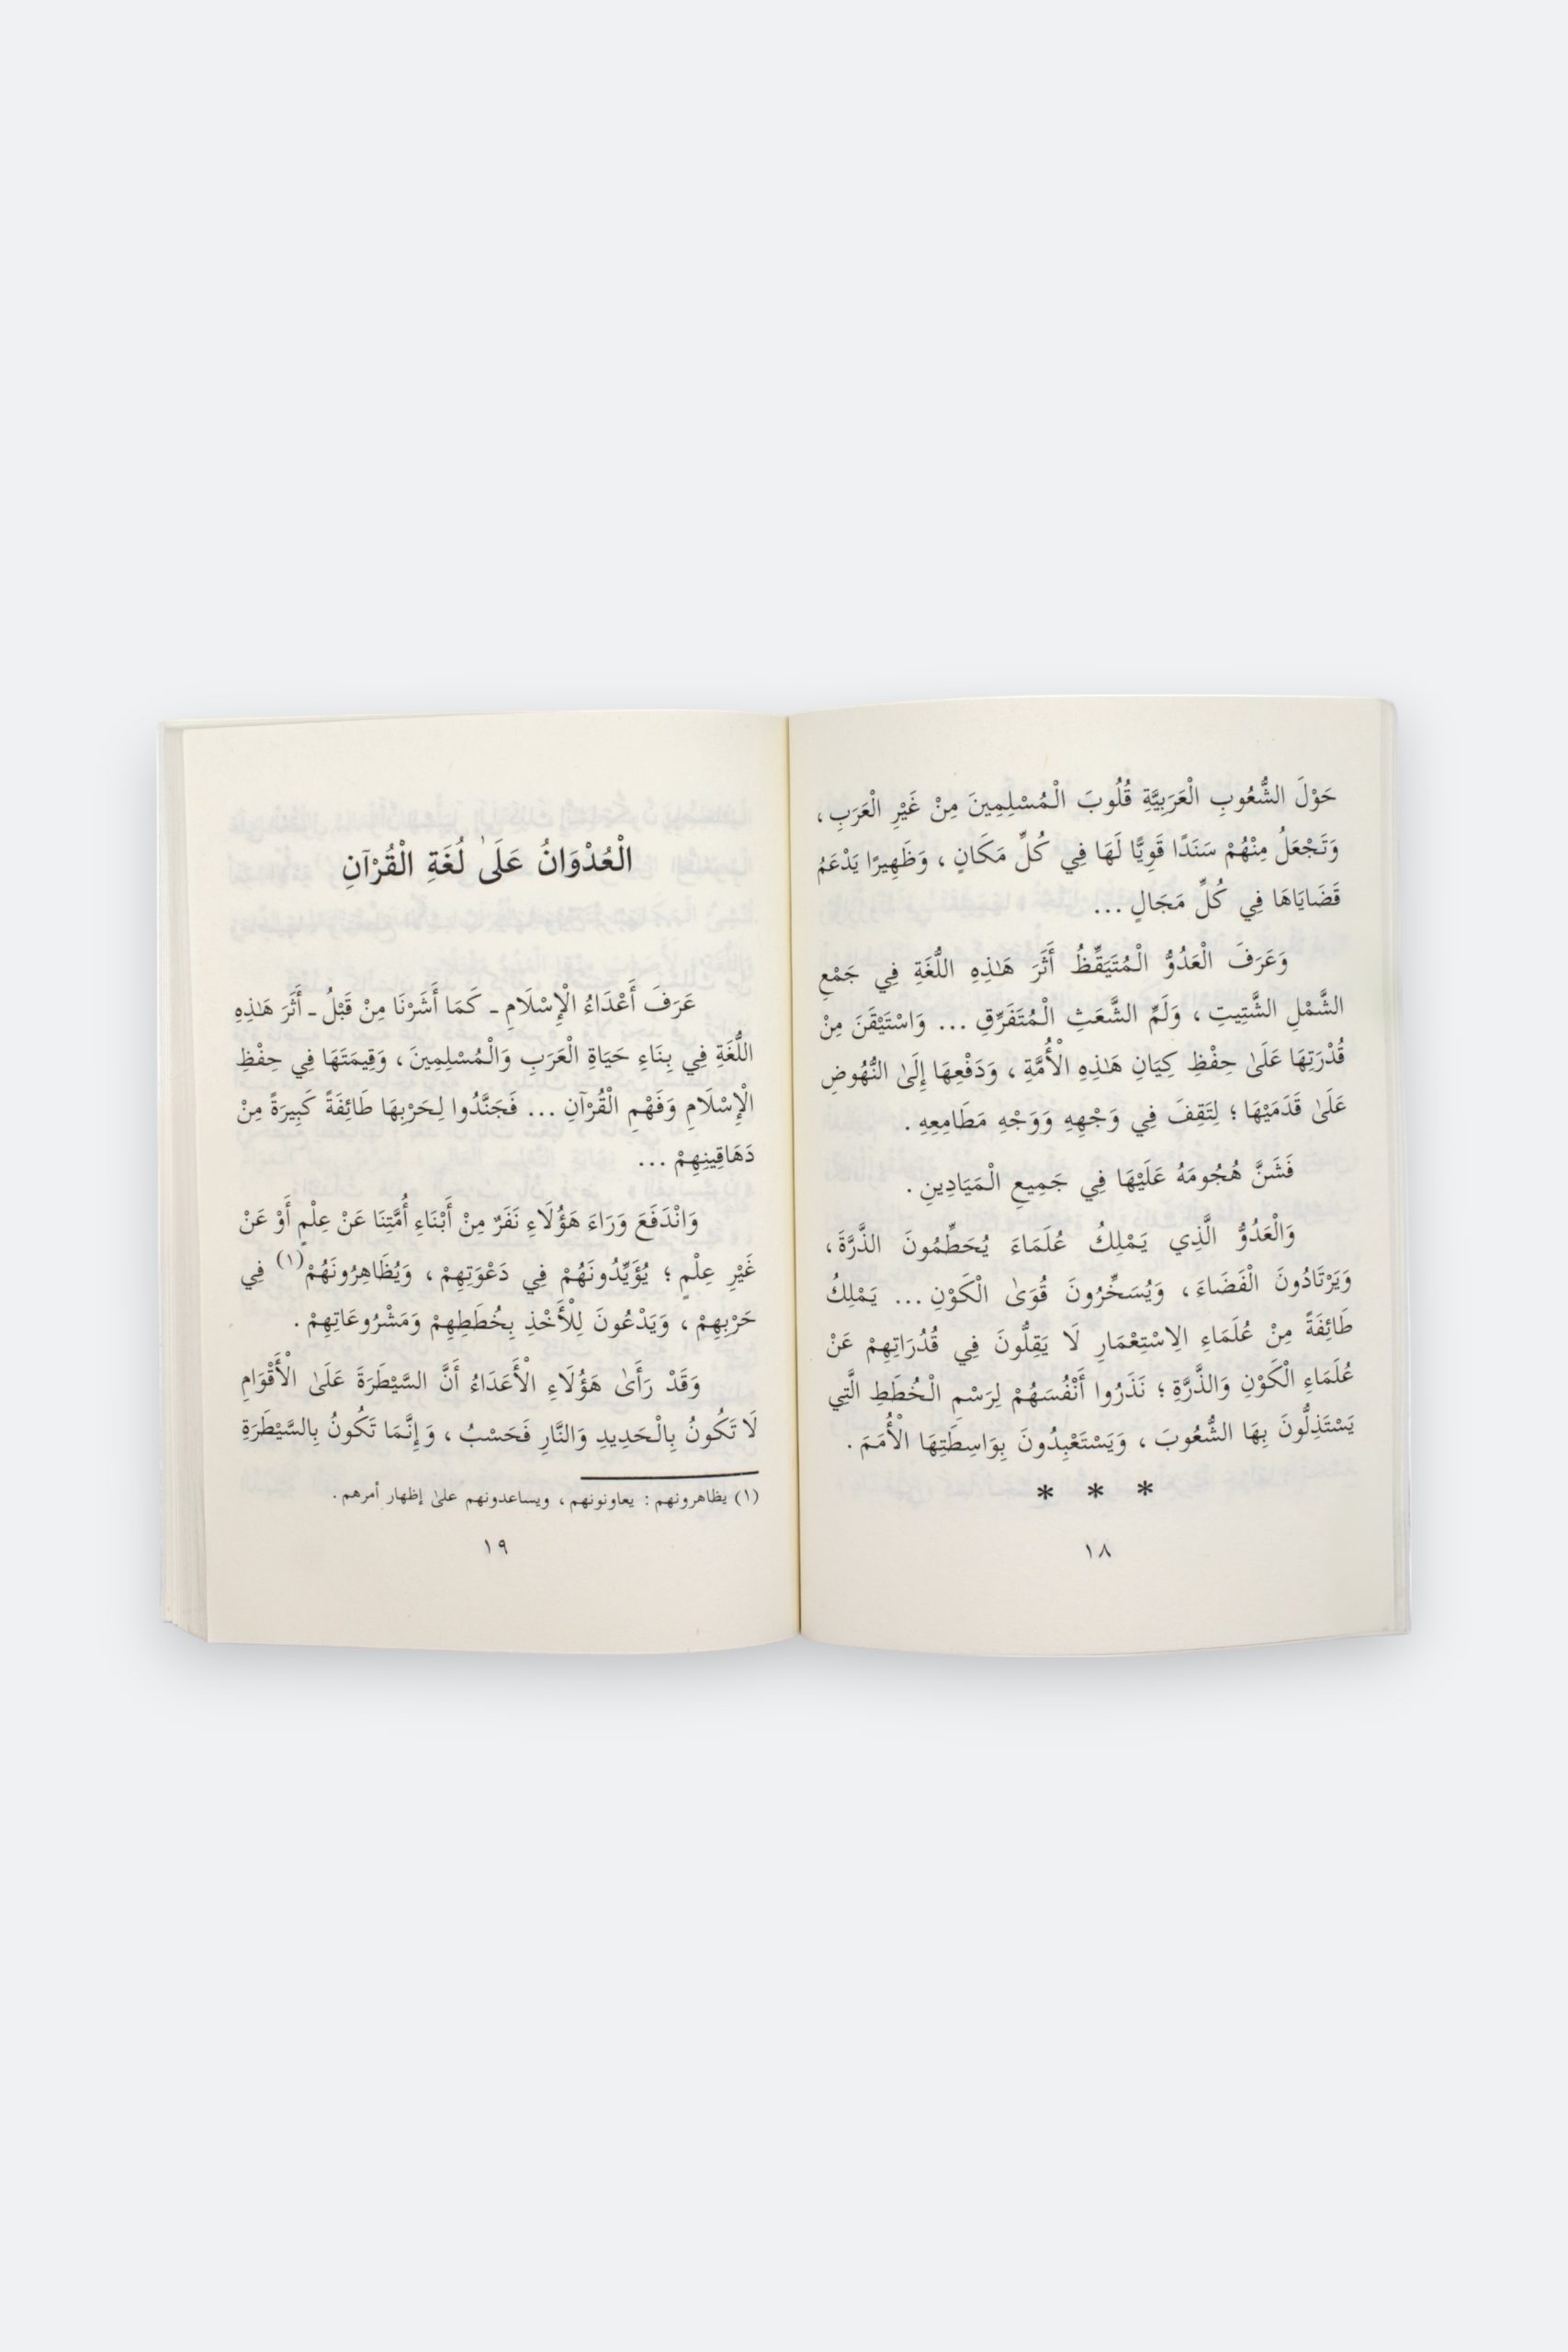 حَوْلَ الشُّعُوبِ الْعَرَبِيَّةِ قُلُوبَ الْمُسْلِمِينَ مِنْ غَيْرِ الْعَرَبِ ،
وَتَجْعَلُ مِنْهُمْ سَنَدًا قَوِيًّا لَهَا فِي كُلِّ مَكَانٍ ، وَظَهِيرًا يَدْعَمُ
قَضَايَاهَا فِي كُلِّ مَجَالٍ ...
وَعَرَفَ الْعَدُوُّ الْمُتَيَقِّظُ أَثَرَ هَـٰذِهِ اللُّغَةِ فِي جَمْعِ
الشَّمْلِ الشَّتِيتِ ، وَلَمِّ الشَّعَثِ الْمُتَفَرِّقِ ... وَاسْتَيْقَنَ مِنْ
قُدْرَتِهَا عَلَىٰ حِفْظِ كِيَانِ هَـٰذِهِ الْأُمَّةِ ، وَدَفْعِهَا إِلَىٰ النُّهُوضِ
عَلَىٰ قَدَمَيْهَا ؛ لِتَقِفَ فِي وَجْهِهِ وَوَجْهِ مَطَامِعِهِ .
فَشَنَّ هُجُومَهُ عَلَيْهَا فِي جَمِيعِ الْمَيَادِينِ .
وَالْعَدُوُّ الَّذِي يَمْلِكُ عُلَمَاءَ يُحَطِّمُونَ الذَّرَّةَ ،
وَيَرْتَادُونَ الْفَضَاءَ ، وَيُسَخِّرُونَ قُوَىٰ الْكَوْنِ ... يَمْلِكُ
طَائِفَةً مِنْ عُلَمَاءِ الِاسْتِعْمَارِ لَا يَقِلُّونَ فِي قُدُرَاتِهِمْ عَنْ
عُلَمَاءِ الْكَوْنِ وَالذَّرَّةِ ؛ نَذَرُوا أَنْفُسَهُمْ لِرَسْمِ الْخُطَطِ الَّتِي
يَسْتَذِلُّونَ بِهَا الشُّعُوبَ ، وَيَسْتَعْبِدُونَ بِوَاسِطَتِهَا الْأُمَمَ .
* * *
١٨
الْعُدْوَانُ عَلَىٰ لُغَةِ الْقُرْآنِ
عَرَفَ أَعْدَاءُ الْإِسْلَامِ ـ كَمَا أَشَرْنَا مِنْ قَبْلُ ـ أَثَرَ هَـٰذِهِ
اللُّغَةِ فِي بِنَاءِ حَيَاةِ الْعَرَبِ وَالْمُسْلِمِينَ ، وَقِيمَتَهَا فِي حِفْظِ
الْإِسْلَامِ وَفَهْمِ الْقُرْآنِ ... فَجَنَّدُوا لِحَرْبِهَا طَائِفَةً كَبِيرَةً مِنْ
دَهَاقِينِهِمْ ...
وَانْدَفَعَ وَرَاءَ هَؤُلَاءِ نَفَرٌ مِنْ أَبْنَاءِ أُمَّتِنَا عَنْ عِلْمٍ أَوْ عَنْ
غَيْرِ عِلْمٍ ؛ يُؤَيِّدُونَهُمْ فِي دَعْوَتِهِمْ ، وَيُظَاهِرُونَهُمْ(١) فِي
حَرْبِهِمْ ، وَيَدْعُونَ لِلْأَخْذِ بِخُطَطِهِمْ وَمَشْرُوعَاتِهِمْ .
وَقَدْ رَأَىٰ هَؤُلَاءِ الْأَعَدَاءُ أَنَّ السَّيْطَرَةَ عَلَىٰ الْأَقْوَامِ
لَا تَكُونُ بِالْحَدِيدِ وَالنَّارِ فَحَسْبُ ، وَإِنَّمَا تَكُونُ بِالسَّيْطَرَةِ
(١) يظاهرونهم : يعاونونهم ، ويساعدونهم علىٰ إظهار أمرهم .
١٩